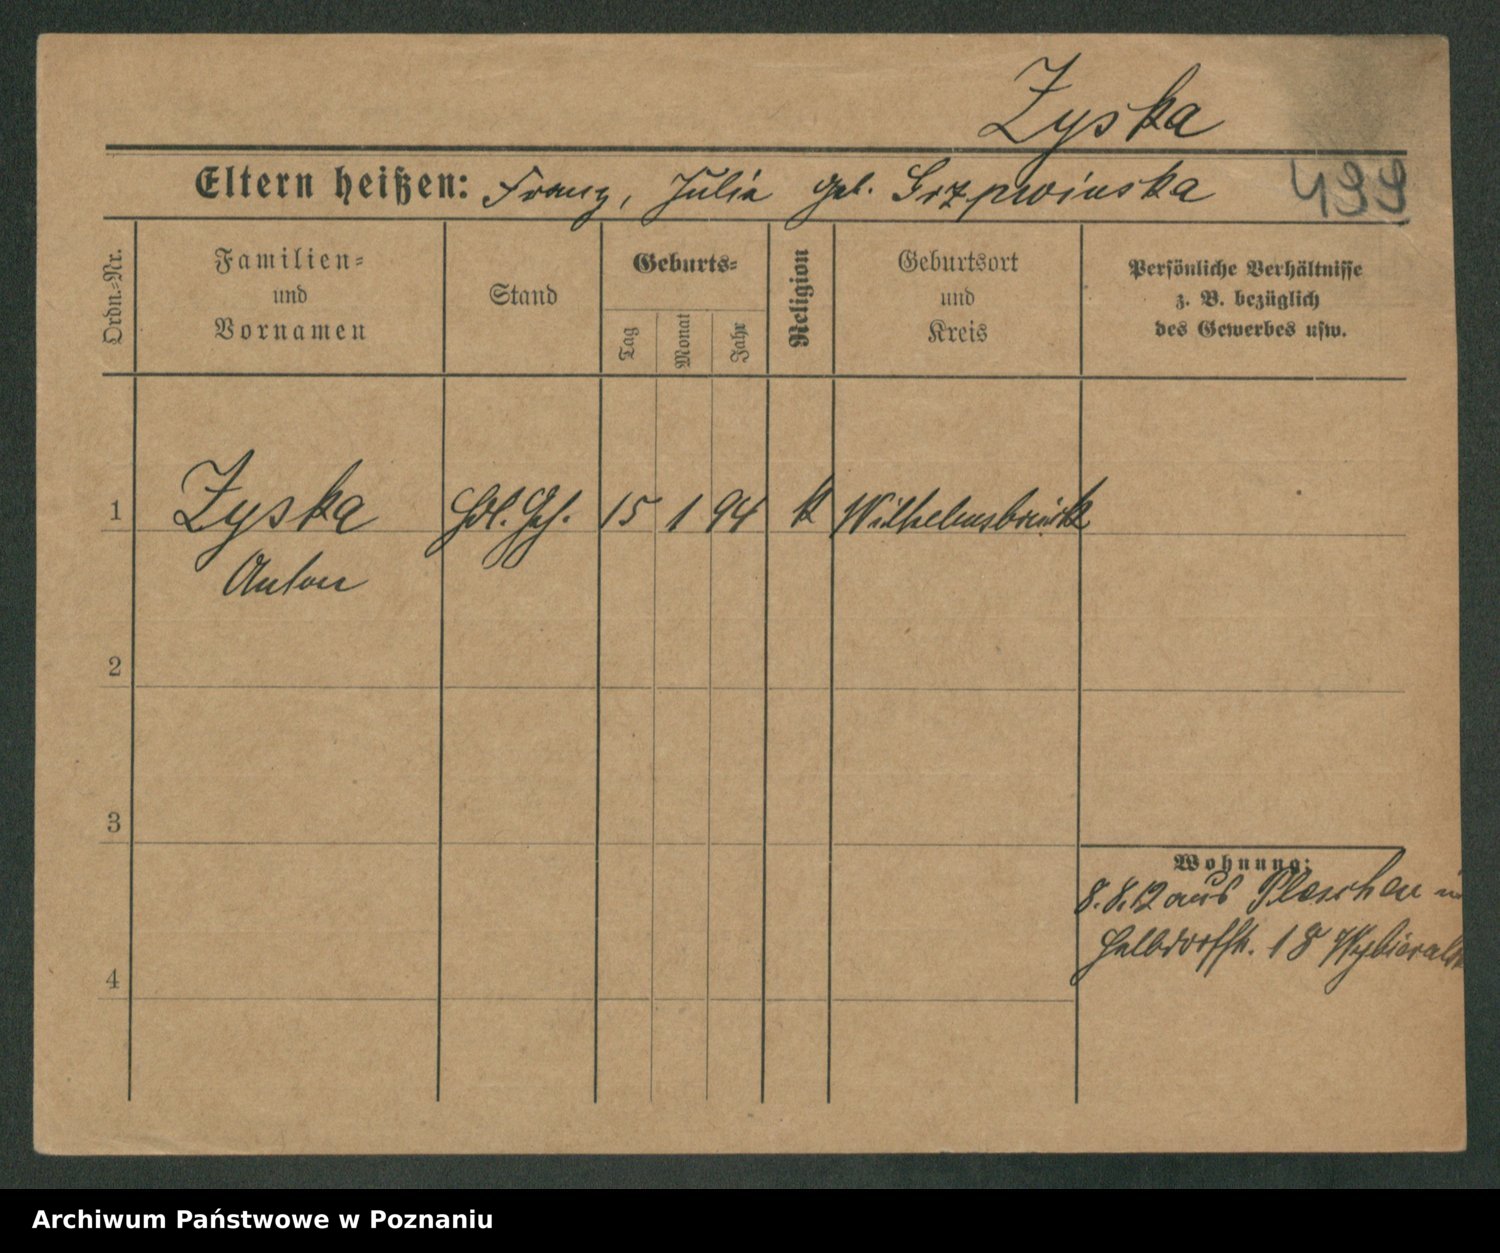 Zyska
Eltern heißen: Franz, Julia geb.
499
Ordn.-Nr.
Familien-
und
Vornamen
Stand
Geburts-
Tag
Monat
Jahr
Religion
Geburtsort
und
Kreis
Persönliche Verhältnisse
z. B. bezüglich
des Gewerbes usw.
1 Zyska Hdl. Geh. 15 1 94 k Wilhelmsbrück
Anton
2
3
Wohnung:
8.8.12 aus Pleschen
4
Halbdorfstr. 18
Archiwum Państwowe w Poznaniu